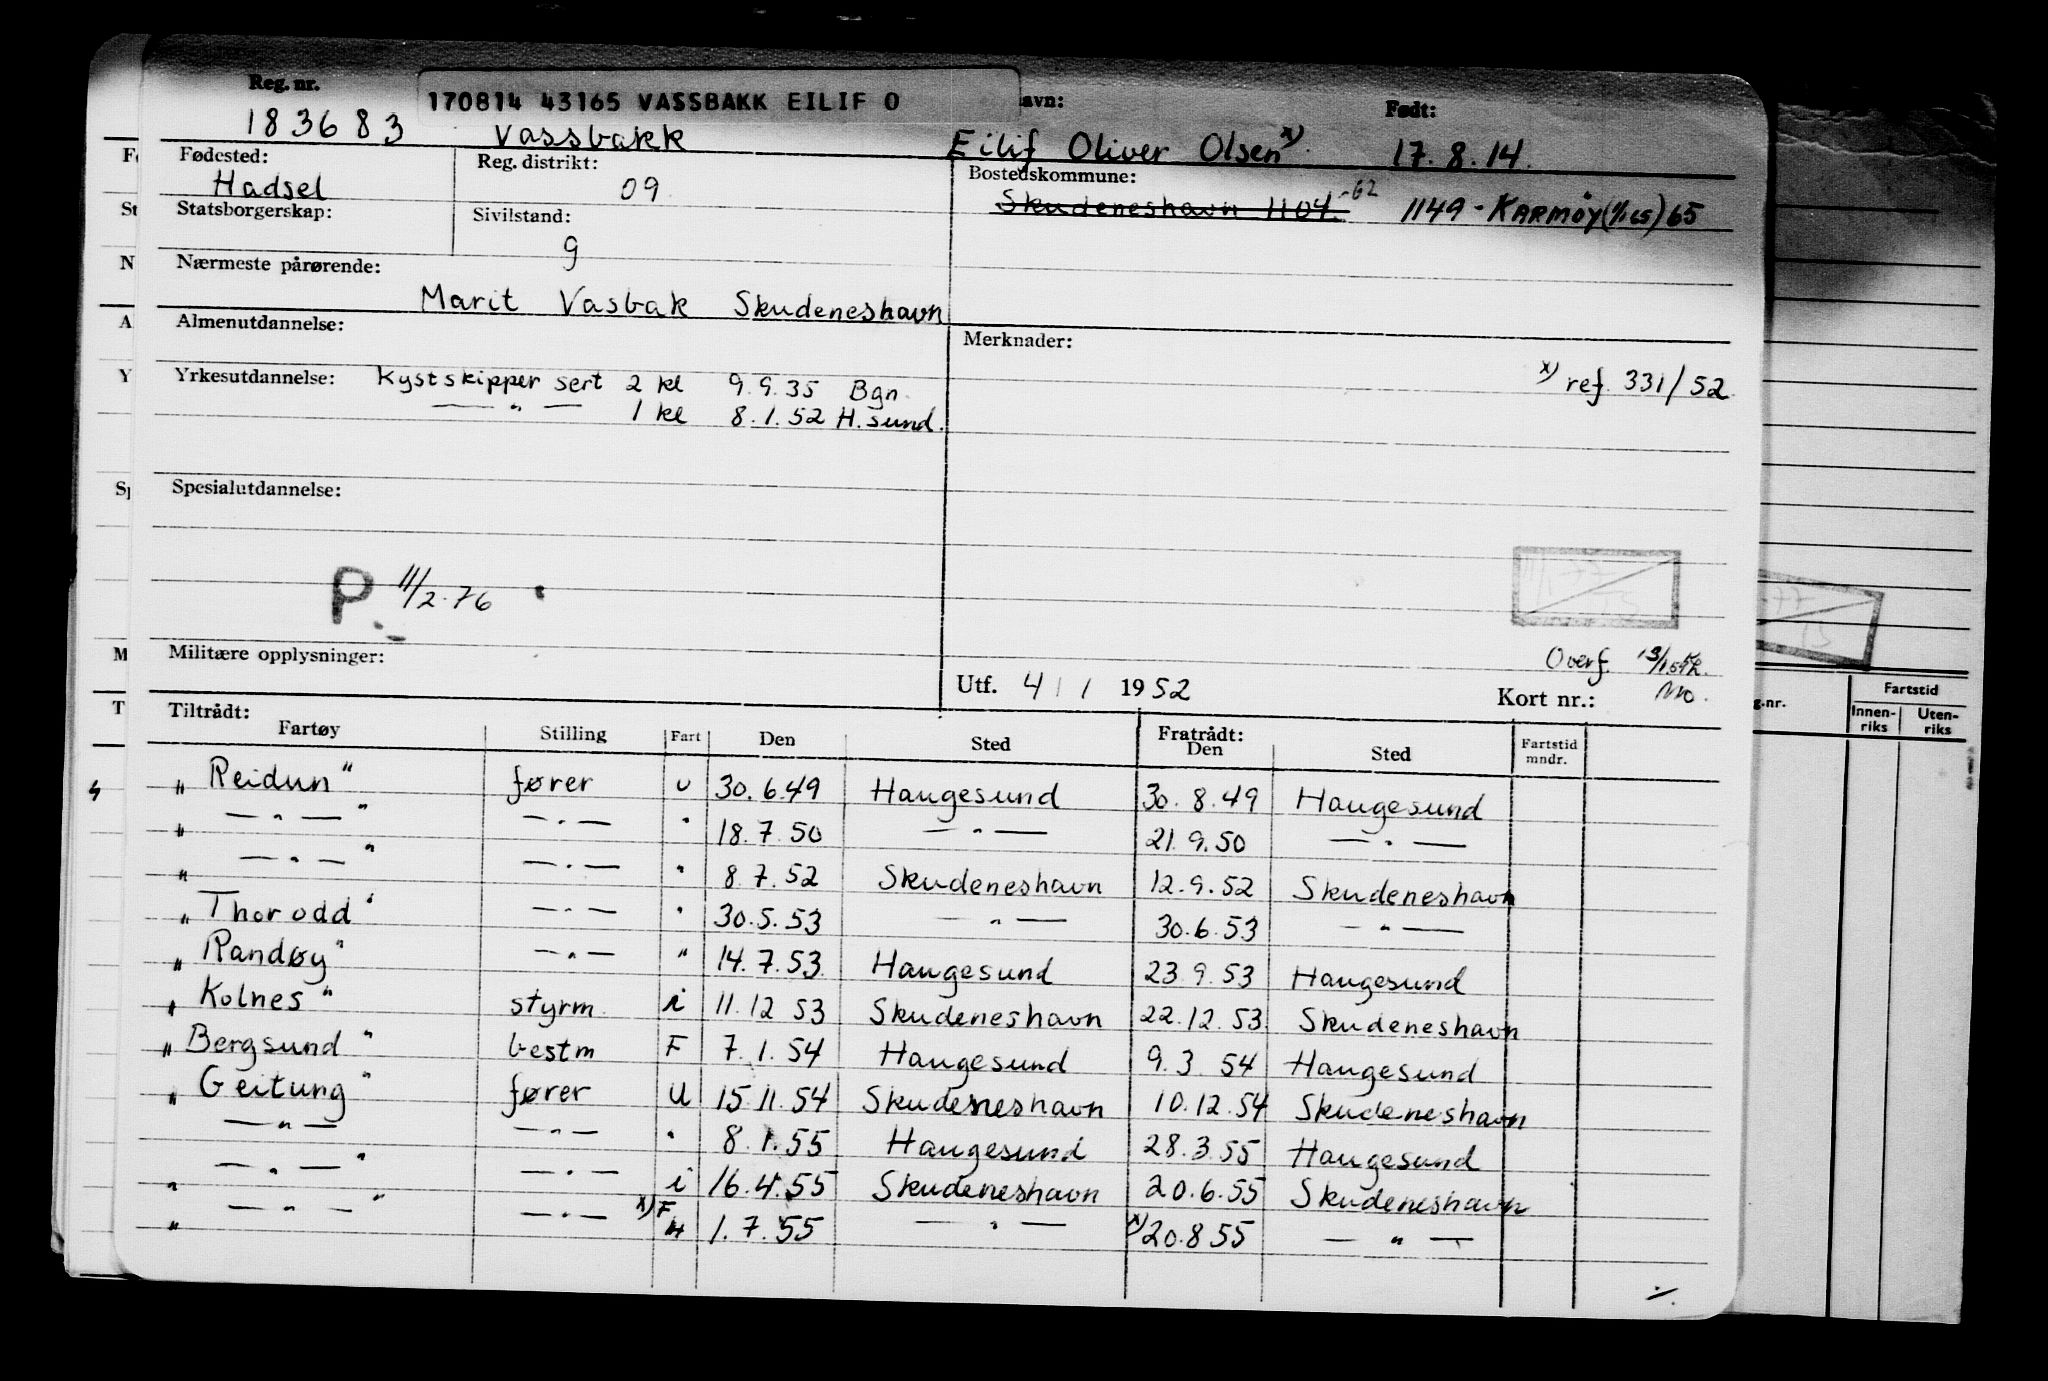 Reg. nr. 170814 43165 VASSBAKK EILIF O avn: Født:
183683 Vassbakk Eilif Oliver Olsen x) 17.8.14.
Fødested: Reg. distrikt: Bostedskommune:
Hadsel 09 Skudeneshavn 1104 -62 1149 - KARMØY (1/1 65) 65
Statsborgerskap: Sivilstand:
g
Nærmeste pårørende:
Marit Vasbak Skudeneshavn
Almenutdannelse: Merknader:
Yrkesutdannelse: Kystskipper sert 2 kl 9.9.35 Bgn. x) ref. 331/52
— " — 1 kl 8.1.52 H.sund.
Spesialutdannelse:
P 11/2.76
Militære opplysninger: Overf.
Utf. 4 / 1 1952 Kort nr.:
Tiltrådt: Fratrådt:
Fartøy Stilling Fart Den Sted Den Sted Fartstid mndr.
" Reidun " fører U 30.6.49 Haugesund 30.8.49 Haugesund
" — " — " — " — " 18.7.50 — " — 21.9.50 — " —
" — " — " — " — " 8.7.52 Skudeneshavn 12.9.52 Skudeneshavn
" Thorodd " — " — " 30.5.53 — " — 30.6.53 — " —
" Randøy " — " — " 14.7.53 Haugesund 23.9.53 Haugesund
" Kolnes " styrm. i 11.12 53 Skudeneshavn 22.12.53 Skudeneshavn
" Bergsund " bestm F 7.1.54 Haugesund 9.3 54 Haugesund
" Geitung " fører U 15.11.54 Skudeneshavn 10.12.54 Skudeneshavn
— " — — " — " 8.1.55 Haugesund 28.3.55 Haugesund
— " — " — " — i 16.4.55 Skudeneshavn 20.6.55 Skudeneshavn
" — " — " — " — x) F 1.7.55 — " — x) 20.8 55 — " —
./.
g.nr. Fartstid
Innen-riks Uten-riks